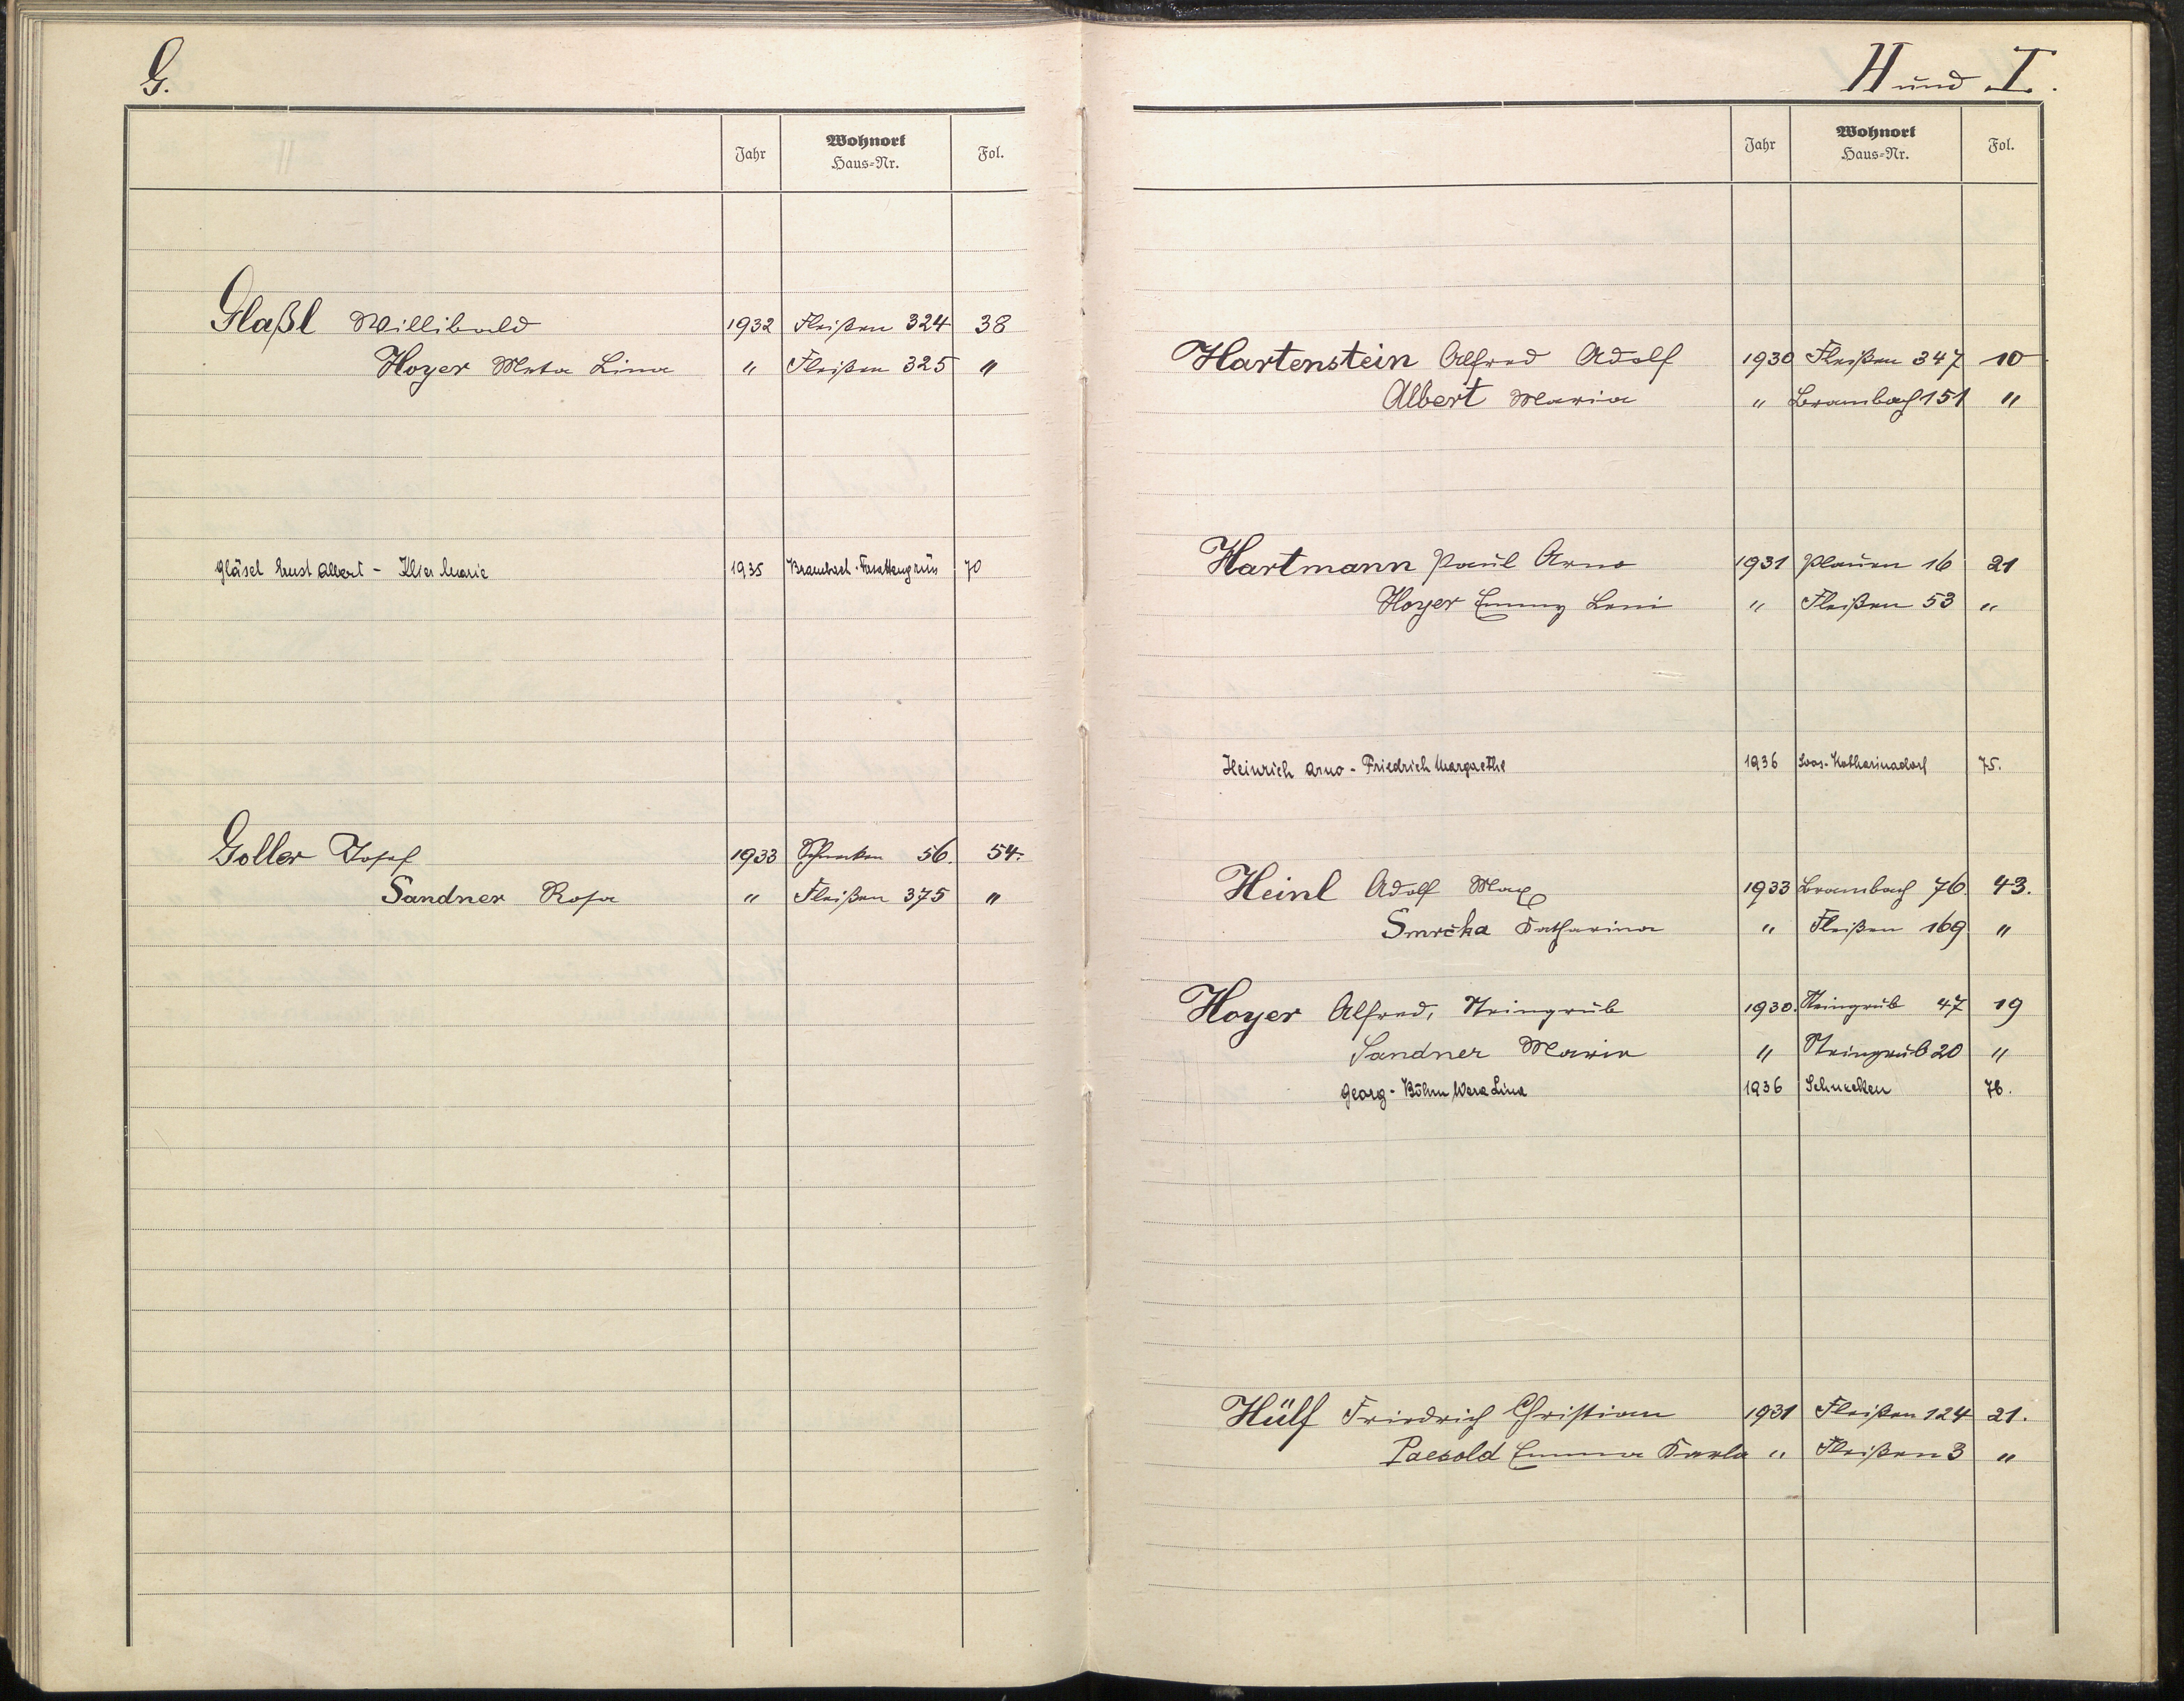 G.
Jahr Wohnort Haus-Nr. Fol.
Glaßl Willibald 1932 Fleißen 324 38
Hoyer Meta Lina " Fleißen 325 "
Gläsel Ernst Albert - Marie 1935 Brambach - 70
Goller Josef 1933 Schnecken 56. 54.
Sandner Rosa " Fleißen 375 "
H und I.
Jahr Wohnort Haus-Nr. Fol.
Hartenstein Alfred Adolf 1930 Fleißen 347 10
Albert Maria " Brambach 151 "
Hartmann Paul Arno 1931 Plauen 16 21
Hoyer Emmy Leni " Fleißen 53 "
Heinrich Arno - Friedrich Margarethe 1936 Soos-Katharinadorf 75.
Heinl Adolf Max 1933 Brambach 76. 43.
Smrčka Katharina " Fleißen 169 "
Hoyer Alfred, Steingrub 1930. Steingrub 47 19
Sandner Maria " Steingrub 20 "
Georg - Böhm Wera Lina 1936 Schnecken 76.
Hülf Friedrich Christian 1931 Fleißen 124 21.
Paesold Emma Karla " Fleißen 3 "